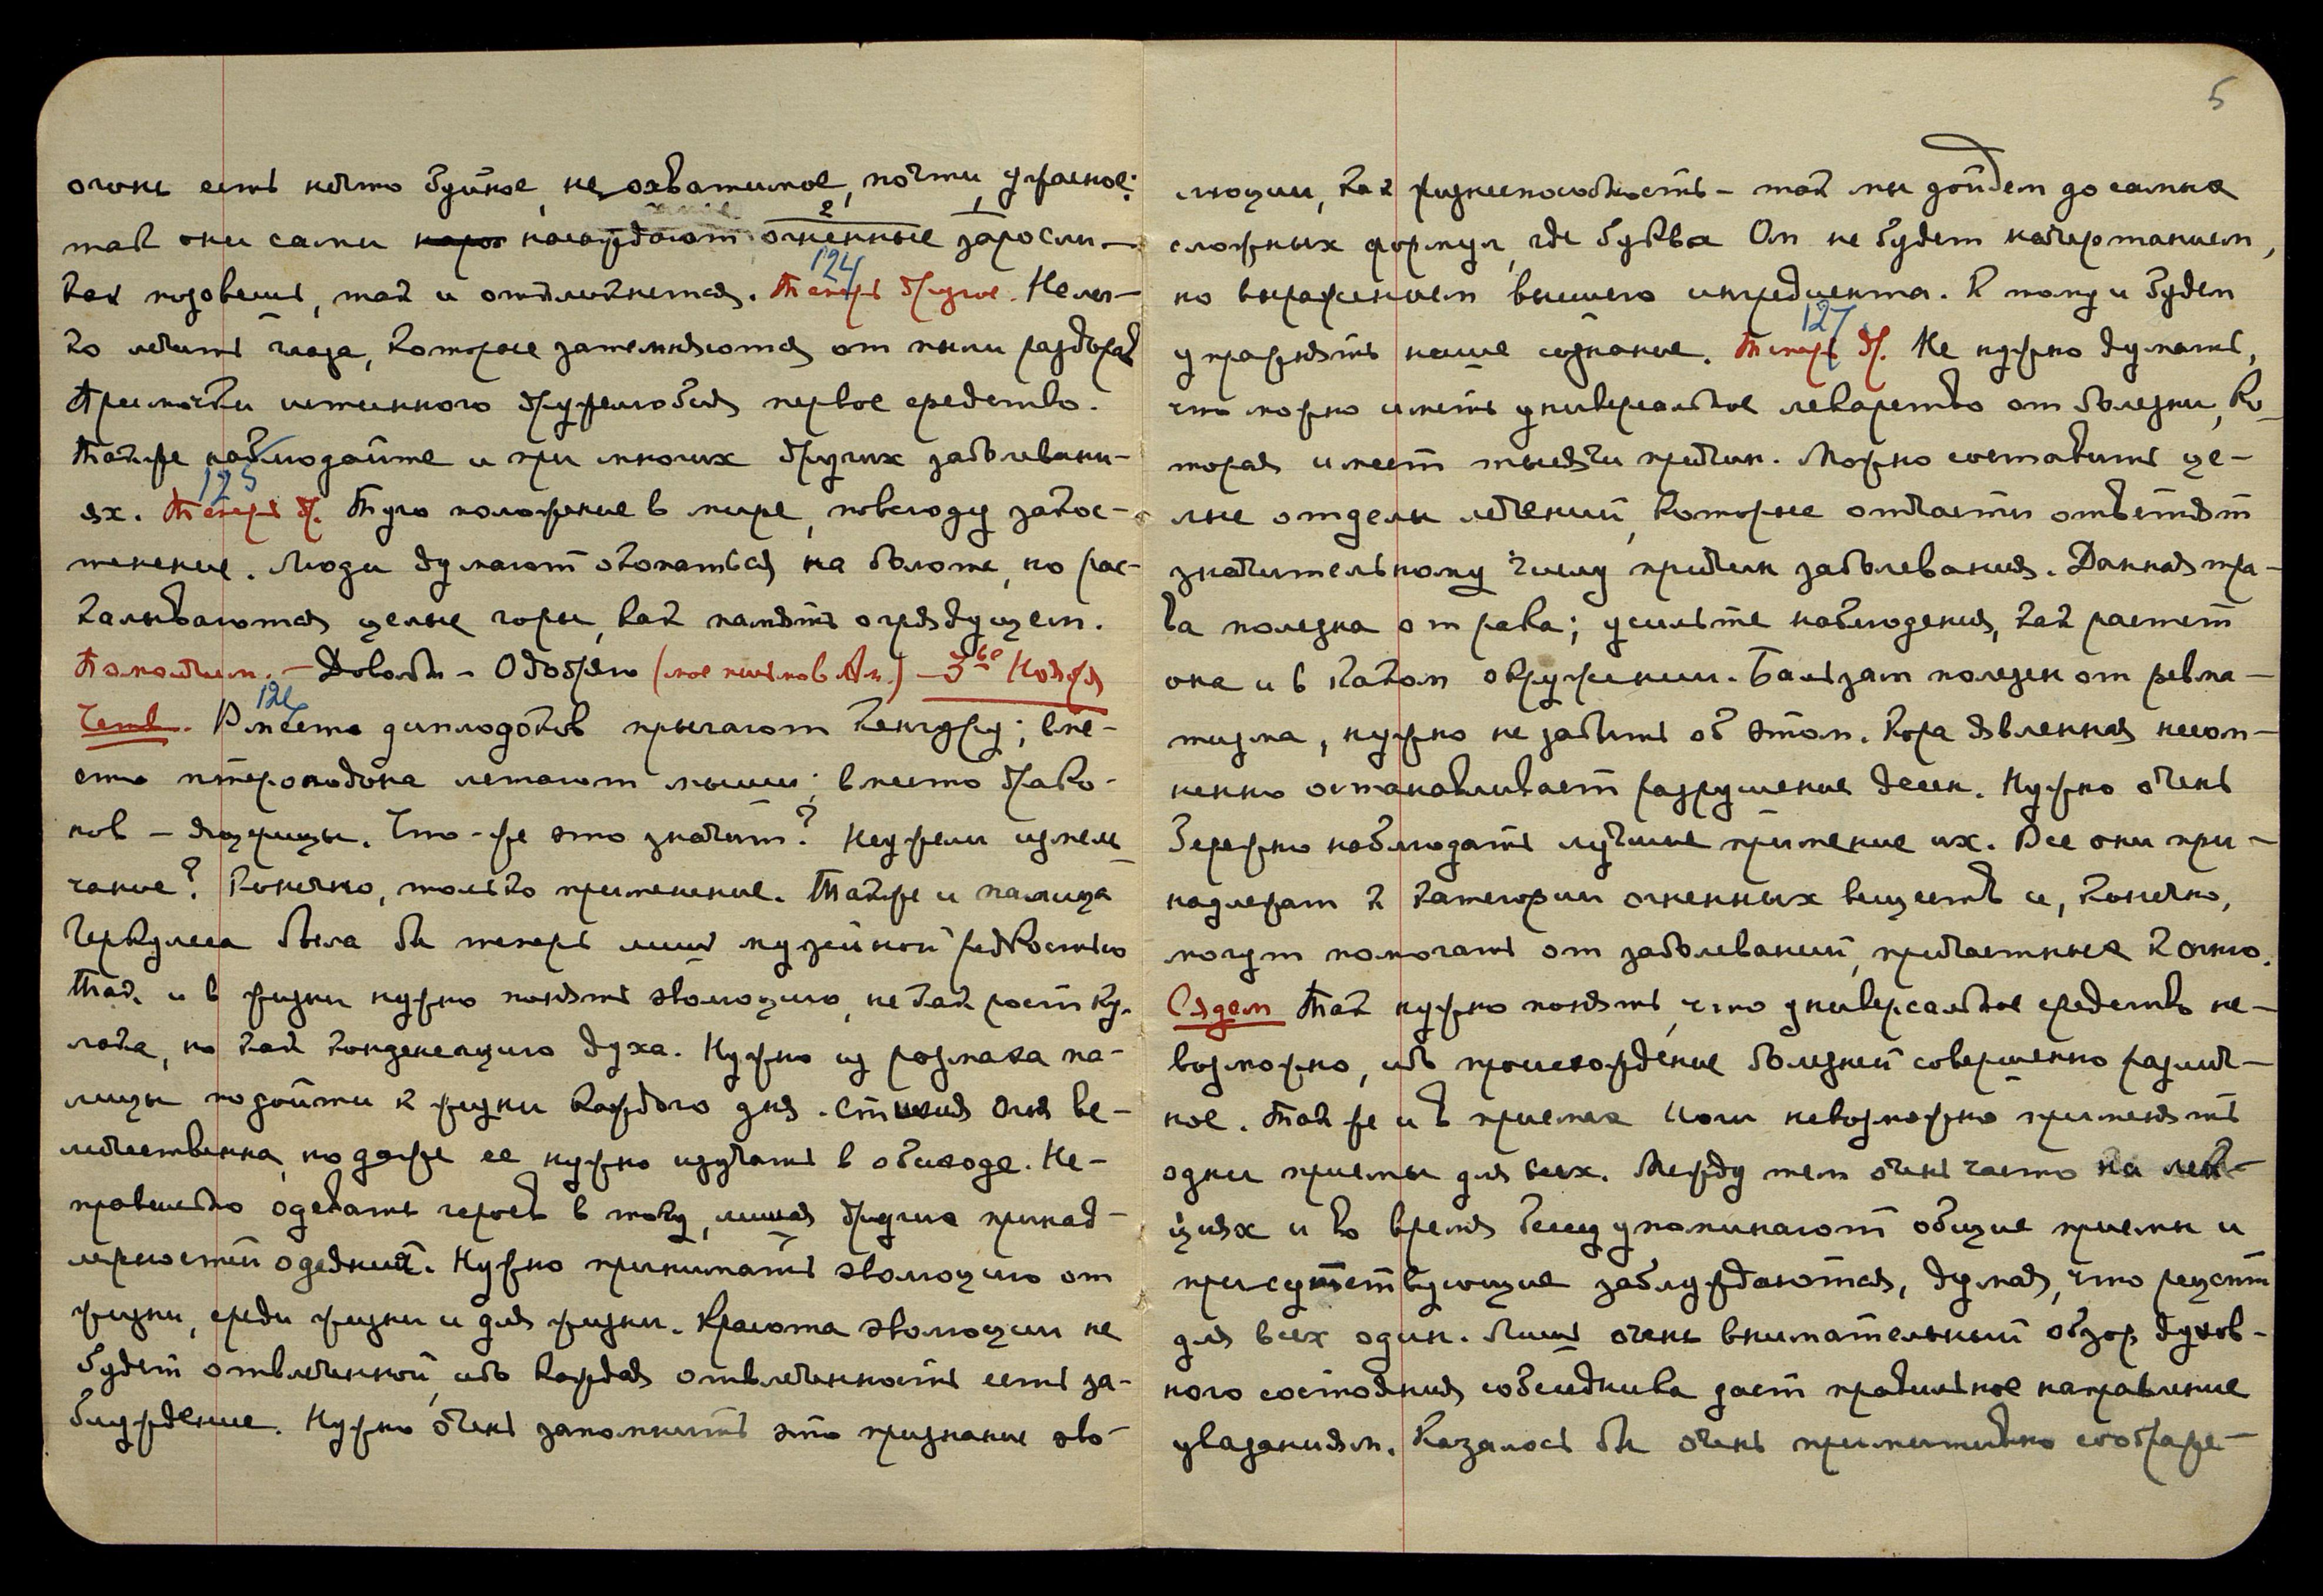 огонь есть нечто буйное, не охватимое, почти ужасное:
так они сами насаждают огненные заросли —
2 1
как позовешь, так и откликнется. Теперь другое. Нелег-
124
ко лечить глаза, которые затемняются от пыли раздоров
Примочки истинного дружелюбия первое средство.
Также наблюдайте и при многих других заболевани-
ях. Теперь др. Туго положение в мире, повсюду закос-
125
тенение. Люди думают окопаться на болоте, но рас-
калываются целые горы, как память о грядущем.
Помолчим. — Довольно — Одобряю (мое письмо в Ам.) — 3ье Ноября
Четв. Вместо диплодоков прыгают кенгуру; вме-
126
сто птеронодона летают мыши; вместо драко-
нов — ящерицы. Что-же это значит? Неужели измель
чание? Конечно, только применение. Также и палица
Геркулеса была бы теперь лишь музейной редкостью
Так и в жизни нужно понять эволюцию, не как рост ку-
лака, но как конденсацию духа. Нужно из размаха па-
лицы подойти к жизни каждого дня. Стихия Огня ве-
личественна, но даже ее нужно изучать в обиходе. Не-
правильно одевать героев в тогу, лишая других принад-
лежностей одеяний. Нужно принимать эволюцию от
жизни, среди жизни и для жизни. Красота эволюции не
будет отвлеченной, ибо каждая отвлеченность есть за-
блуждение. Нужно очень запомнить это признание эво-
5
люции, как жизнеспособность — так мы дойдем до самых
сложных формул, где буква Ом не будет начертанием,
но выражением высшего ингредиента. К тому и будем
упражнять наше сознание. Теперь др. Не нужно думать,
127
что можно иметь универсальное лекарство от болезни, ко-
торая имеет тысячи причин. Можно составить це-
лые отделы лечений, которые отчасти ответят
значительному числу причин заболевания. Данная тра-
ва полезна от рака; усильте наблюдения, как растет
она и в каком окружении. Бальзам полезен от ревма-
тизма, нужно не забыть об этом. Кора явленная несом-
ненно останавливает разрушение десен. Нужно очень
бережно наблюдать лучшее применение их. Все они при-
надлежат к категории огненных веществ и, конечно,
могут помогать от заболеваний, причастных к Огню.
Сядем Так нужно понять, что универсальное средство не-
возможно, ибо происхождение болезней совершенно различ-
ное. Так же и в приемах Йоги невозможно применять
одни приемы для всех. Между тем очень часто на лек-
циях и во время бесед упоминают общие приемы и
присутствующие заблуждаются, думая, что рецепт
для всех один. Лишь очень внимательный обзор духов-
ного состояния собеседника даст правильное направление
указаниям. Казалось бы очень примитивно соображе-